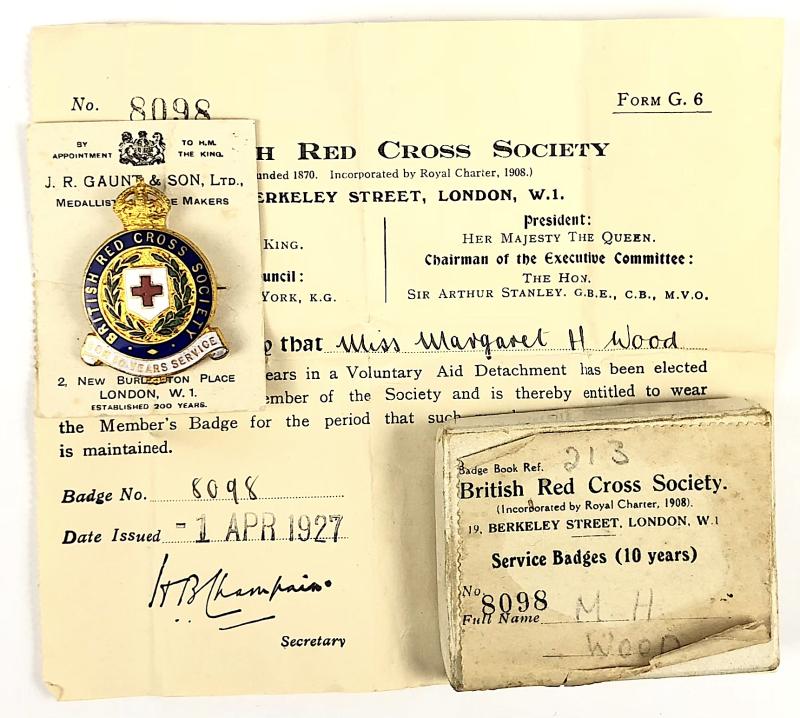 No. 8098
FORM G. 6
H RED CROSS SOCIETY
unded 1870. Incorporated by Royal Charter, 1908.)
ERKELEY STREET, LONDON, W.1.
KING.
uncil:
YORK, K.G.
President:
HER MAJESTY THE QUEEN.
Chairman of the Executive Committee:
THE HON.
SIR ARTHUR STANLEY. G.B.E., C.B., M.V.O.
that Miss Margaret H Wood
ears in a Voluntary Aid Detachment has been elected
ember of the Society and is thereby entitled to wear
the Member's Badge for the period that such
is maintained.
Badge No. 8098
Date Issued -1 APR 1927
H B Champain
Secretary
BY APPOINTMENT
TO H.M. THE KING.
J. R. GAUNT & SON, LTD.,
MEDALLIST MAKERS
BRITISH RED CROSS SOCIETY
YEARS SERVICE
2, NEW BURLINGTON PLACE
LONDON, W.1.
ESTABLISHED 200 YEARS.
Badge Book Ref. 213
British Red Cross Society.
(Incorporated by Royal Charter, 1908).
19, BERKELEY STREET, LONDON, W.1
Service Badges (10 years)
No. 8098
Full Name M H
WOOD